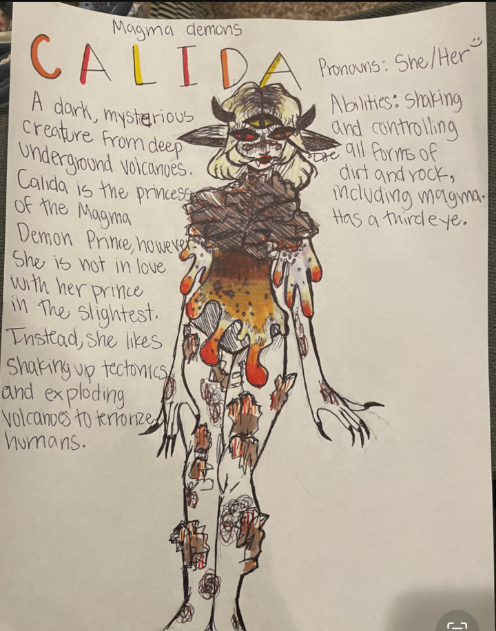 Magma demons
CALIDA
Pronouns: She/Her
A dark, mysterious
creature from deep
underground volcanoes.
Calida is the princess
of the Magma
Demon Prince, however
She is not in love
with her prince
in the slightest.
Instead, she likes
Shaking up tectonics
and exploding
volcanoes to terrorize
humans.
Abilities: Shaking
and controlling
all forms of
dirt and rock,
including magma.
Has a third eye.